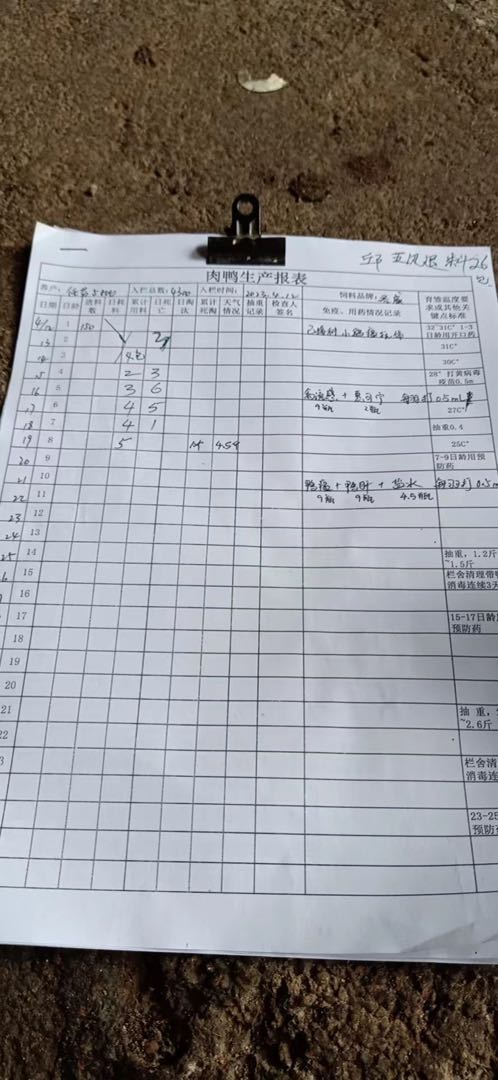 料26
包
肉鸭生产报表
客户: 入栏总数: 4300 入栏时间: 2023.4.12 饲料品牌:
日期 日龄 进料数 日耗料 累计用料 日死亡 日淘汰 累计死淘 天气情况 抽重记录 检查人签名 免疫、用药情况记录 育雏温度要求或其关键点标准
4/12 1 150 32~31C° 1-3日龄用开口药
13 2 31C°
3 4包 30C°
15 4 2 3 28° 打黄病毒疫苗0.5m
16 5 3 6 禽流感 + 每羽打0.5ml
17 6 4 5 9瓶 2瓶 27C°
18 7 4 1 抽重0.4
19 8 5 4.54 25C°
20 9 7-9日龄用预防药
21 10 鸭瘟 + 鸭肝 + 盐水 每羽打0.5m
22 11 9瓶 9瓶 4.5瓶
23 12
24 13
25 14 抽重, 1.2斤~1.5斤
15 栏舍清理带
消毒连续3天
16
17 15-17日龄
预防药
18
19
20
21 抽重,
~2.6斤
22
栏舍清
消毒连
23-25
预防